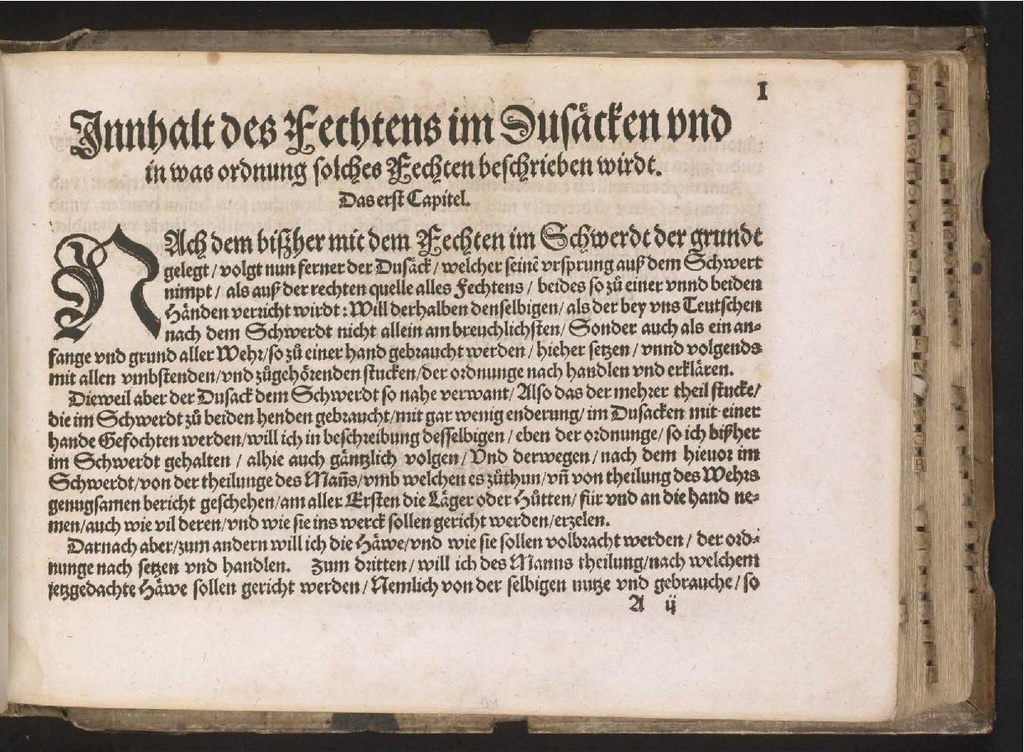 I
Innhalt des Fechtens im Dusäcken vnd
in was ordnung solches Fechten beschrieben wirdt.
Das erst Capitel.
NAch dem bißher mit dem Fechten im Schwerdt der grundt
gelegt / volgt nun ferner der Dusäck / welcher seinē vrsprung auß dem Schwert
nimpt / als auß der rechten quelle alles Fechtens / beides so zů einer vnnd beiden
Händen verricht wirdt: Will derhalben denselbigen / als der bey vns Teutschen
nach dem Schwerdt nicht allein am breuchlichsten / Sonder auch als ein an-
fange vnd grund aller Wehr / so zů einer hand gebraucht werden / hieher setzen / vnnd volgends
mit allen vmbstenden / vnd zůgehörenden stucken / der ordnunge nach handlen vnd erklären.
Dieweil aber der Dusack dem Schwerdt so nahe verwant / Also das der mehrer theil stucke /
die im Schwerdt zů beiden henden gebraucht / mit gar wenig enderung / im Dusacken mit einer
hande Gefochten werden / will ich in beschreibung desselbigen / eben der ordnunge / so ich bißher
im Schwerdt gehalten / alhie auch gäntzlich volgen / Vnd derwegen / nach dem hieuor im
Schwerdt / von der theilunge des Mañs / vmb welchen es zůthun / vñ von theilung des Wehrs
genugsamen bericht geschehen / am aller Ersten die Läger oder Hütten / für vnd an die hand ne-
men / auch wie vil deren / vnd wie sie ins werck sollen gericht werden / erzelen.
Darnach aber / zum andern will ich die Häwe / vnd wie sie sollen volbracht werden / der ord-
nunge nach setzen vnd handlen. Zum dritten / will ich des Manns theilung / nach welchem
jetzgedachte Häwe sollen gericht werden / Nemlich von der selbigen nutze vnd gebrauche / so
A ij